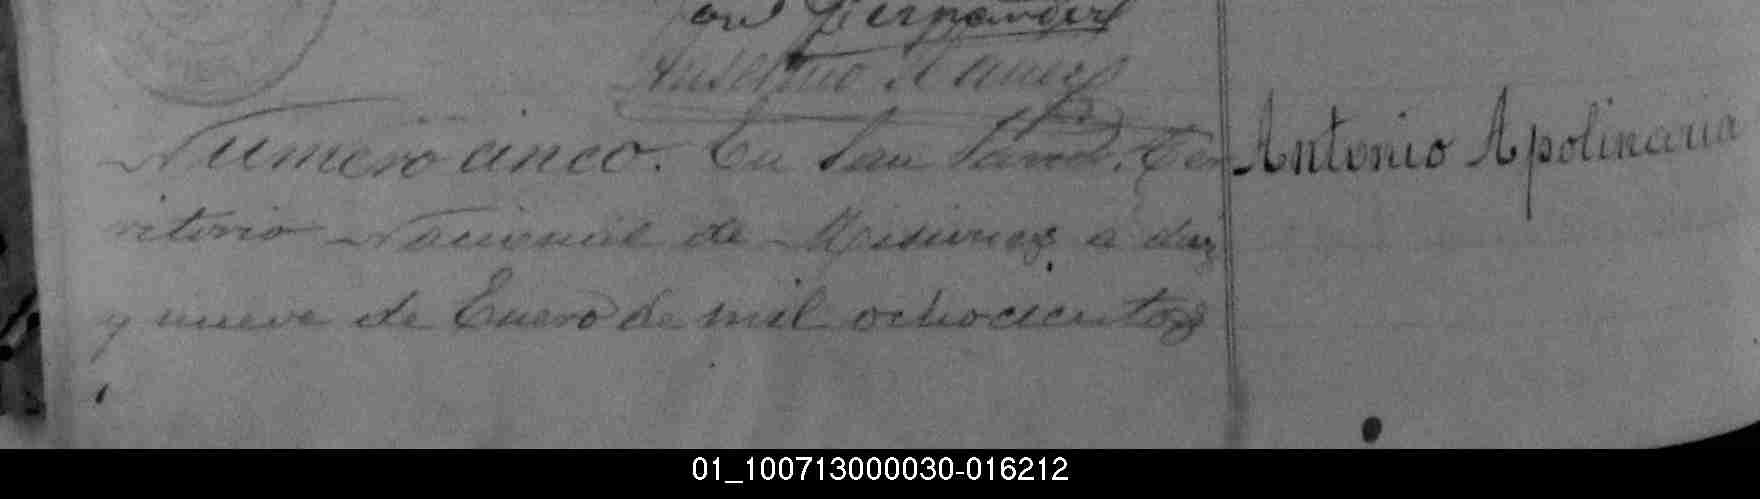 José Hernández
Anselmo Nuñez
Numero cinco. En San José, Ter
ritorio Nacional de Misiones a diez
y nueve de Enero de mil ochocientos
Antonio Apolinaria
01_100713000030-016212